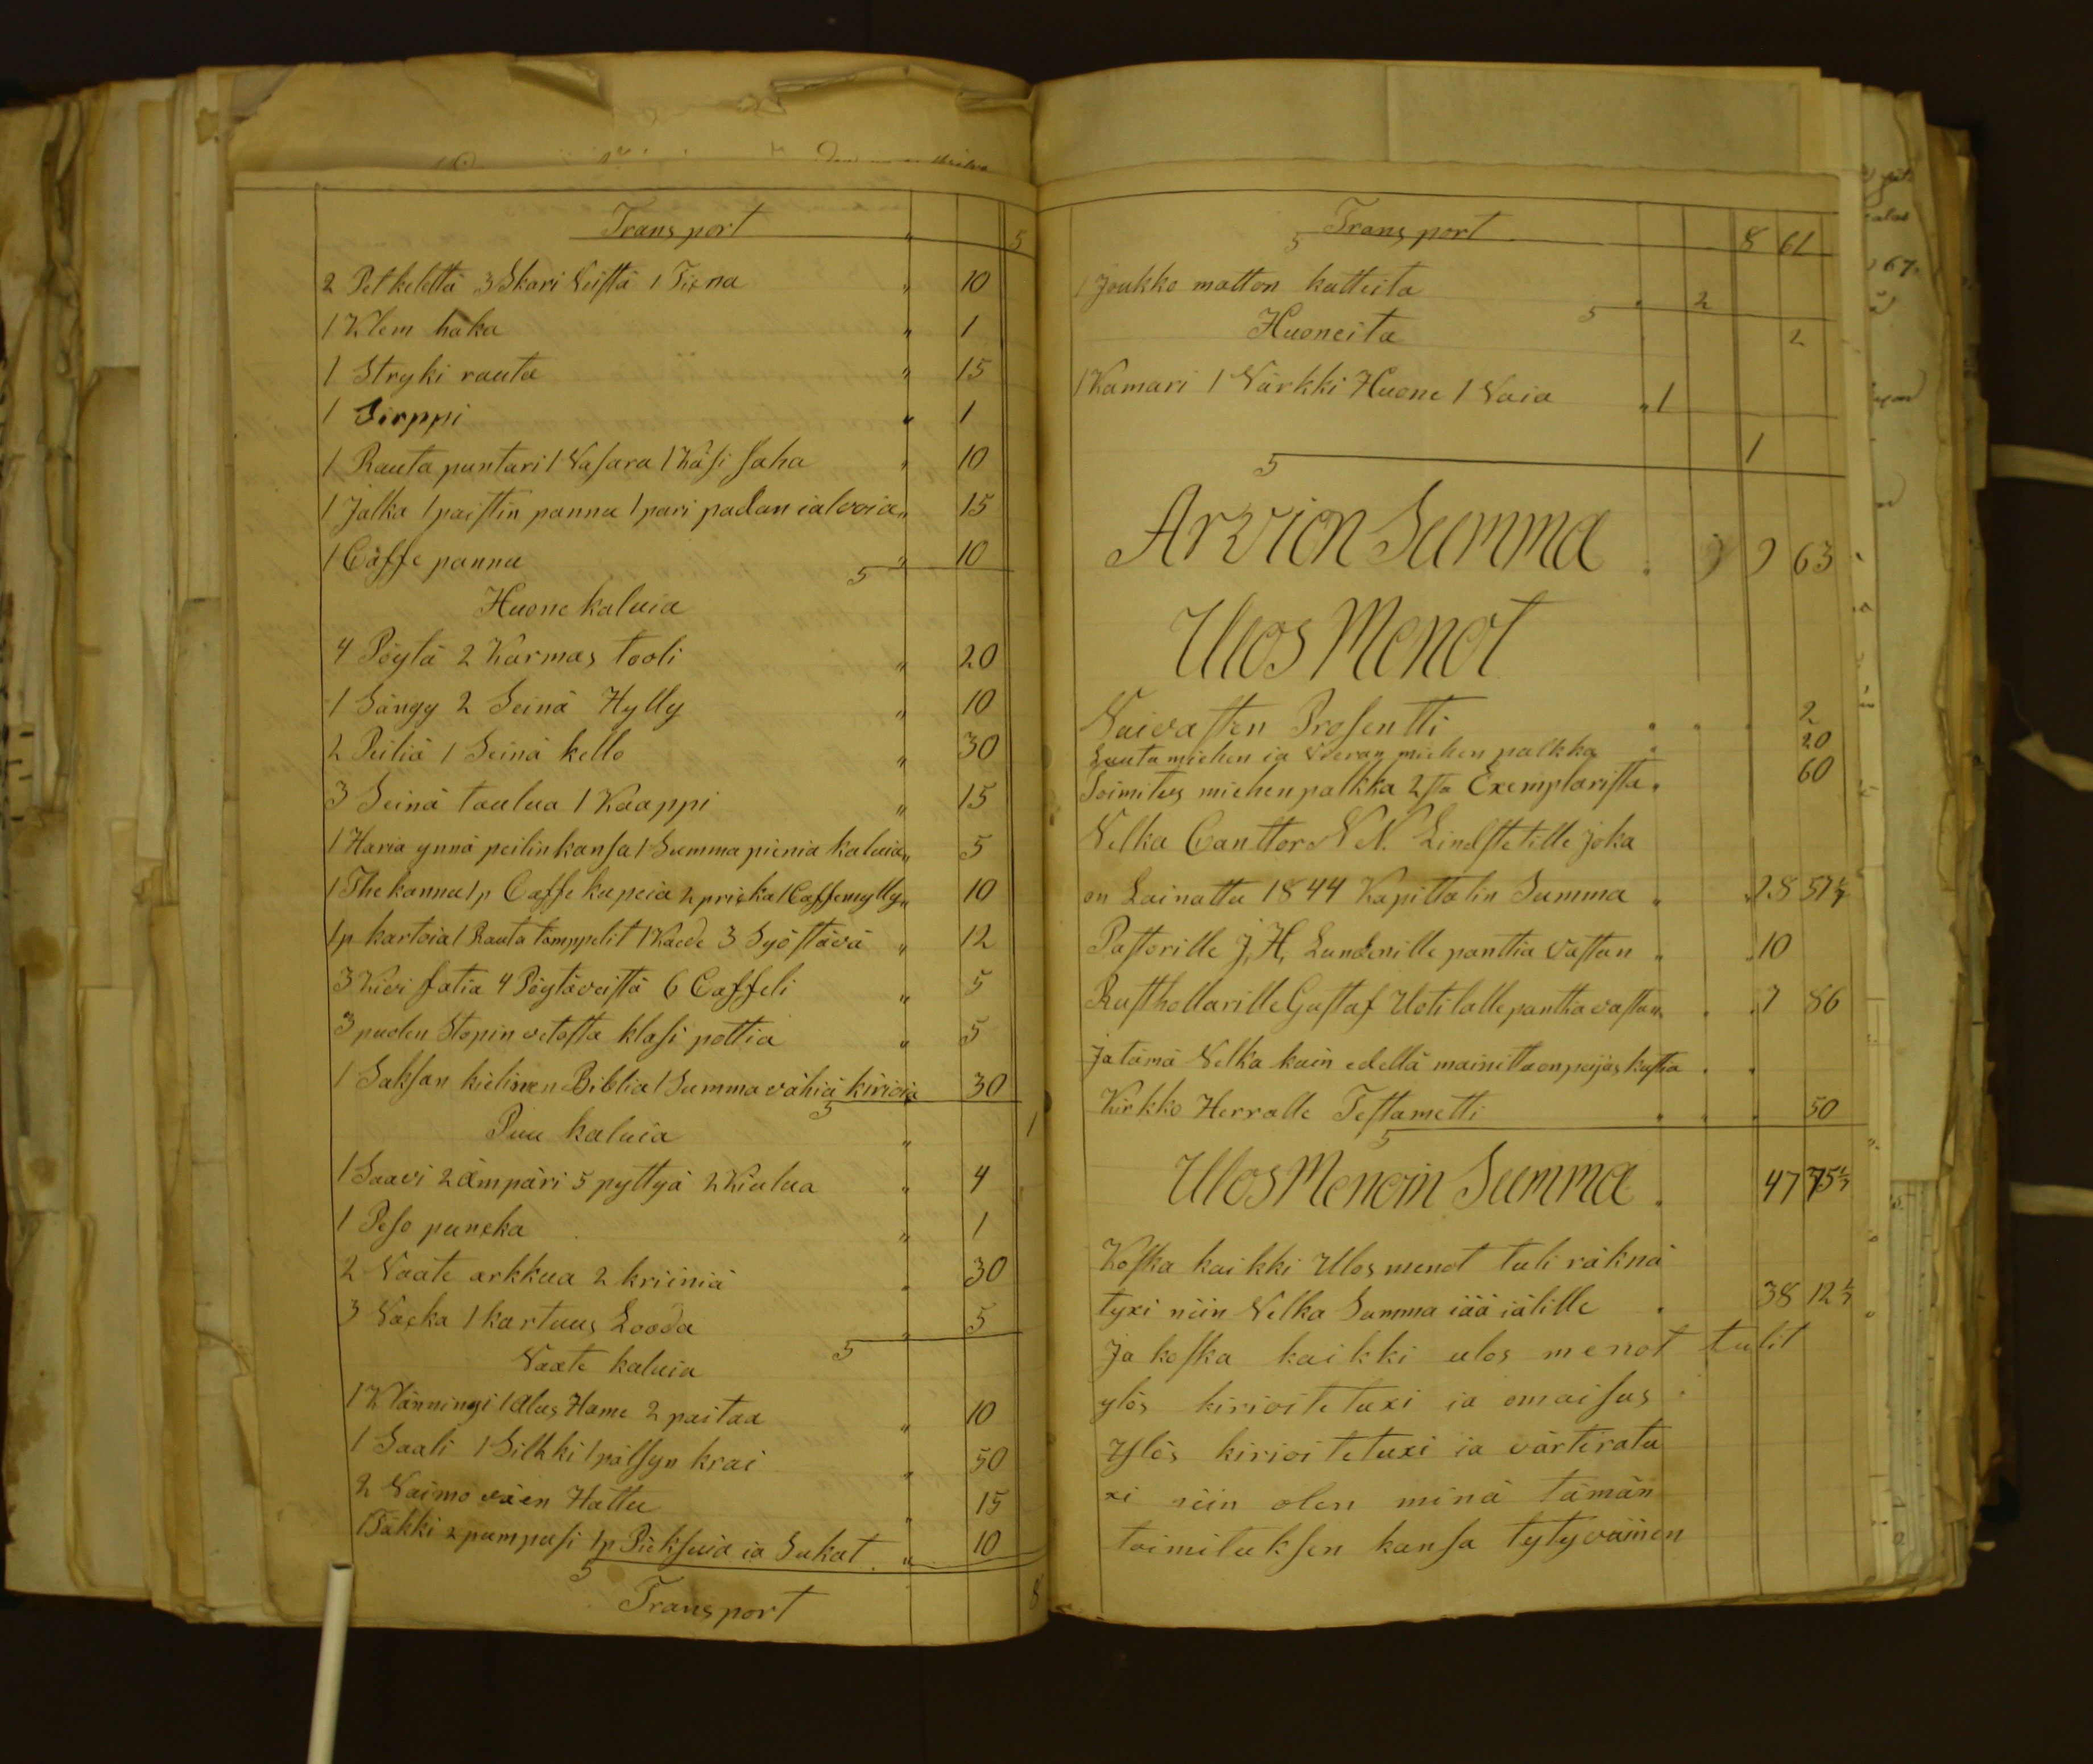 Transport " 5
2 Petkelettä 3 Skari Veistä 1 Tiena " 10
1 Klem haka " 1
1 Stryki rauta " 15
1 Sirppi " 1
1 Rauta puntari 1 Vasara 1 Käsi saha " 10
1 Jalka 1 paistin pannu 1 pari padan ialvoia " 15
1 Caffe pannu " 10
5
Huone kaluia
4 Pöytä 2 Karmas tooli " 20
1 Sängy 2 Seinä Hylly " 10
2 Peiliä 1 Seinä kello " 30
3 Seinä taulua 1 Kaappi " 15
1 Haria ynnä peilin kansa 1 Summa pieniä kaluia " 5
1 The kannu 1 p Caffe kupeia 2 pricka 1 Caffemylly " 10
1 p kartoia 1 Rauta tämppelit 1 Kaede 3 Syöttävä " 12
3 Kivi fatia 4 Pöytäveistä 6 Caffeli " 5
3 puolen Stopin vetosta klasi pottia " 5
1 Saksan kielinen Biblia 1 Summa vähiä kirioia 30
5
Puu kaluia " 1
1 Saavi 2 ämpäri 5 pyttyä 2 Kiulua " 4
1 Peso puncka " 1
2 Vaate arkkua 2 kriiniä " 30
3 Vacka 1 kartuus Looda " 5
5
Vaate kaluia
1 Klänningi 1 alus Hame 2 paitaa " 10
1 Saali 1 Silkki 1 pälsyn krai " 50
2 Vaimo väen Hattu " 15
1 Täkki 2 pumpusi 1 p Pieksuia ia Sukat " 10
5
Transport 8
Transport 8 61
5
1 Joukko matton katteita " 2
5
Huoneita 2
1 Kamari 1 Värkki Huone 1 Vaia " 1
1
5
Arvion Summa 9 63
Ulos Menot
Vaivasten Prosentti 2
Lautamiehen ia Vieran miehen palkka 20
Toimitus miehen palkka 2sta Exemplarista 60
Velka Canttor N N. Lindstetille joka
on Lainattu 1844 Kapittalin Summa " 28 57 1/7
Pastorille J, H, Lundenille panttia vastan " 10
Rusthollarille Gustaf Uotilalle panttia vastan 7 86
Ja tämä Velka kuin edellä mainittaon peijas kustia
Kirkko Herralle Testametti 50
5
Ulos Menoin Summa 47 75 1/7
Koska kaikki Ulosmenot tuli räknä
tyxi niin Velka Summa iää iälille 38 12 1/7
Ja koska kaikki ulos menot tulit
ylös kirioitetuxi ia omaisus
Ylös kirioitetuxi ia värteratu
xi niin olen minä tämän
toimituksen kansa tytyväinen